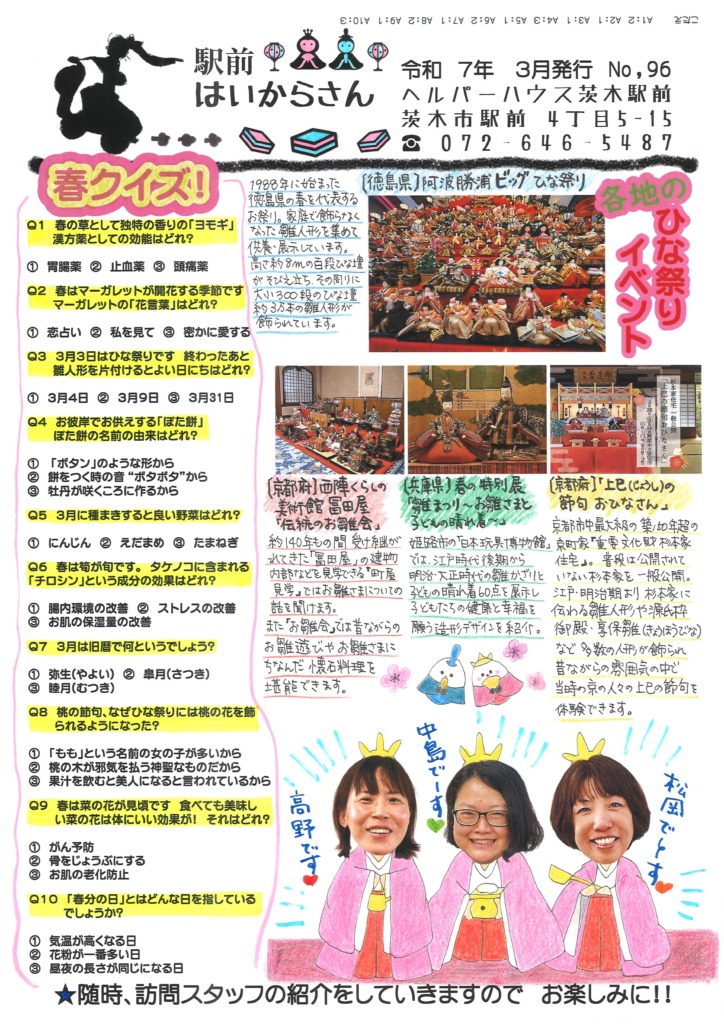 こたえ A1:2 A2:1 A3:1 A4:3 A5:1 A6:2 A7:1 A8:2 A9:1 A10:3
駅前
はいからさん
令和 7年 3月発行 No,96
ヘルパーハウス茨木駅前
茨木市駅前 4丁目5-15
☎ 072-646-5487
春クイズ!
Q1 春の草として独特の香りの「ヨモギ」
漢方薬としての効能はどれ?
① 胃腸薬 ② 止血薬 ③ 頭痛薬
Q2 春はマーガレットが開花する季節です
マーガレットの「花言葉」はどれ?
① 恋占い ② 私を見て ③ 密かに愛する
Q3 3月3日はひな祭りです 終わったあと
雛人形を片付けるとよい日にちはどれ?
① 3月4日 ② 3月9日 ③ 3月31日
Q4 お彼岸でお供えする「ぼた餅」
ぼた餅の名前の由来はどれ?
① 「ボタン」のような形から
② 餅をつく時の音“ボタボタ”から
③ 牡丹が咲くころに作るから
Q5 3月に種まきすると良い野菜はどれ?
① にんじん ② えだまめ ③ たまねぎ
Q6 春は筍が旬です。 タケノコに含まれる
「チロシン」という成分の効果はどれ?
① 腸内環境の改善 ② ストレスの改善
③ お肌の保湿量の改善
Q7 3月は旧暦で何というでしょう?
① 弥生(やよい) ② 皐月(さつき)
③ 睦月(むつき)
Q8 桃の節句、なぜひな祭りには桃の花を飾
られるようになった?
① 「もも」という名前の女の子が多いから
② 桃の木が邪気を払う神聖なものだから
③ 果汁を飲むと美人になると言われているから
Q9 春は菜の花が見頃です 食べても美味し
い菜の花は体にいい効果が! それはどれ?
① がん予防
② 骨をじょうぶにする
③ お肌の老化防止
Q10 「春分の日」とはどんな日を指している
でしょうか?
① 気温が高くなる日
② 花粉が一番多い日
③ 昼夜の長さが同じになる日
各地の
ひな祭り
イベント
[徳島県]阿波勝浦ビッグひな祭り
1988年に始まった
徳島県の春を代表する
お祭り。家庭で飾らなく
なった雛人形を集めて
供養・展示しています。
高さ約8mの百段ひな壇
がそびえ立ち、その周りに
大小300段のひな壇
約3万体の雛人形が
飾られています。
杉本家住宅 一般公開
「上巳の節句 おひなさん」
[京都府]西陣くらしの
美術館 冨田屋
「伝統のお雛会」
約140年もの間受け継が
れてきた「冨田屋」の建物
内部などを見学できる「町屋
見学」ではお雛さまについての
話を聞けます。
また「お雛会」では昔ながらの
お雛遊びやお雛さまに
ちなんだ懐石料理を
堪能できます。
[兵庫県]春の特別展
「雛まつり〜お雛さまと
子どもの晴れ着〜」
姫路市の「日本玩具博物館」
では、江戸時代後期から
明治・大正時代の雛かざりと
子どもの晴れ着60点を展示し
子どもたちの健康と幸福を
願う造形デザインを紹介。
[京都府]「上巳(じょうし)の
節句 おひなさん」
京都市中最大級の築150年超の
京町家「重要文化財 杉本家
住宅」。普段は公開されて
いない杉本家を一般公開。
江戸・明治期より杉本家に
伝わる雛人形や源氏枠
御殿・享保雛(きょうほうびな)
など多数の人形が飾られ
昔ながらの雰囲気の中で
当時の京の人々の上巳の節句を
体験できます。
高野です
中島でーす
松岡でーす
★随時、訪問スタッフの紹介をしていきますので お楽しみに!!